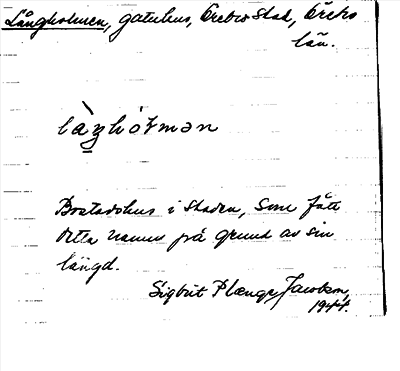 Långholmen, gatuhus, Örebro stad, Örebro
län.
Bostadshus i staden, som fått
detta namn på grund av sin
längd.
Sigbrit Plænge Jacobson,
1944.